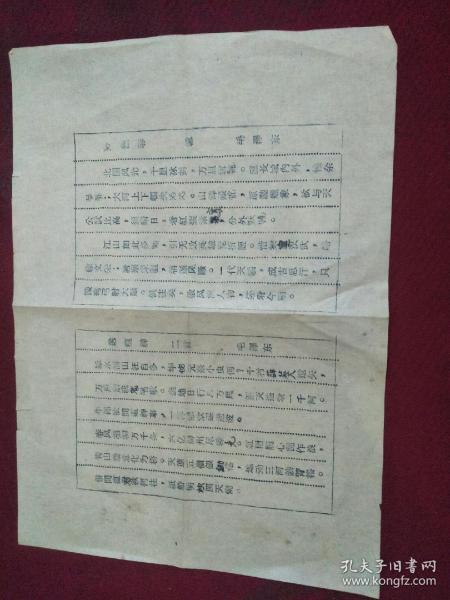 沁园春 雪 毛澤东
北国风光，千里冰封，万里雪飘。望长城内外，惟余
莽莽；大河上下，顿失滔滔。山舞银蛇，原驰蜡象，欲与天
公試比高。须晴日，看红装素裹，分外妖娆。
江山如此多娇，引无数英雄竞折腰。惜秦皇汉武，略
输文采；唐宗宋祖，稍逊风骚。一代天骄，成吉思汗，只
識弯弓射大雕。俱往矣，数风流人物，还看今朝。
送瘟神 二首 毛澤东
綠水青山枉自多，华佗无奈小虫何？千村薜荔人遺矢，
万戶萧疏鬼唱歌。坐地日行八万里，巡天遥看一千河。
牛郎欲問瘟神事，一样悲欢逐逝波。
春风楊柳万千条，六亿神州尽舜尧。紅雨随心翻作浪，
青山着意化为桥。天連五嶺銀锄落，地动三河鉄臂摇。
借問瘟君欲何往，紙船明烛照天烧。
孔夫子旧书网
www.kongfz.com